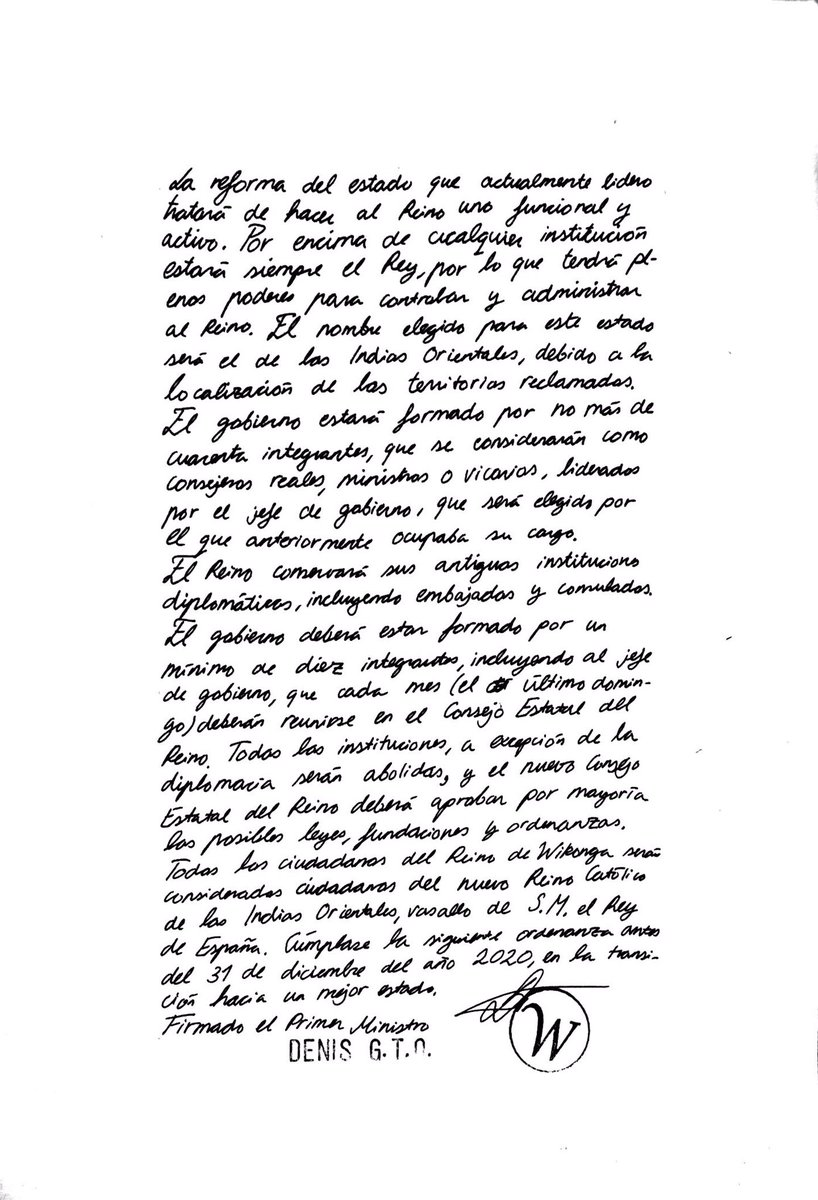 La reforma del estado que actualmente lidero
tratará de hacer al Reino uno funcional y
activo. Por encima de cualquier institución
estará siempre el Rey, por lo que tendrá pl-
enos poderes para controlar y administrar
al Reino. El nombre elegido para este estado
será el de las Indias Orientales, debido a la
localización de los territorios reclamados.
El gobierno estará formado por no más de
cuarenta integrantes, que se considerarán como
consejeros reales, ministros o vicarios, liderados
por el jefe de gobierno, que será elegido por
el que anteriormente ocupaba su cargo.
El Reino conservará sus antiguas instituciones
diplomáticas, incluyendo embajadas y consulados.
El gobierno deberá estar formado por un
mínimo de diez integrantes, incluyendo al jefe
de gobierno, que cada mes (el último domin-
go) deberán reunirse en el Consejo Estatal del
Reino. Todas las instituciones, a excepción de la
diplomacia serán abolidas, y el nuevo Consejo
Estatal del Reino deberá aprobar por mayoría
las posibles leyes, fundaciones y ordenanzas.
Todos los ciudadanos del Reino de Wikonga serán
considerados ciudadanos del nuevo Reino Católico
de las Indias Orientales, vasallo de S.M. el Rey
de España. Cúmplase la siguiente ordenanza antes
del 31 de diciembre del año 2020, en la transi-
ción hacia un mejor estado.
Firmado el Primer Ministro
DENIS G.T.O.
W